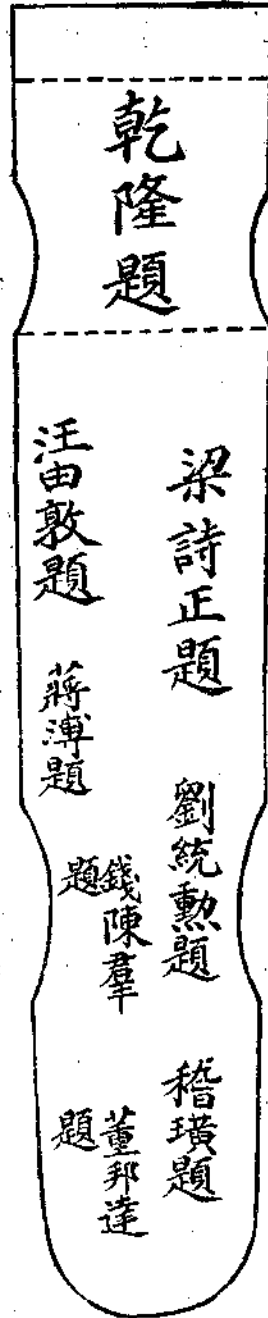 乾隆題
梁詩正題
劉統勲題
稽璜題
汪由敦題
蔣溥題
錢陳羣題
董邦達題